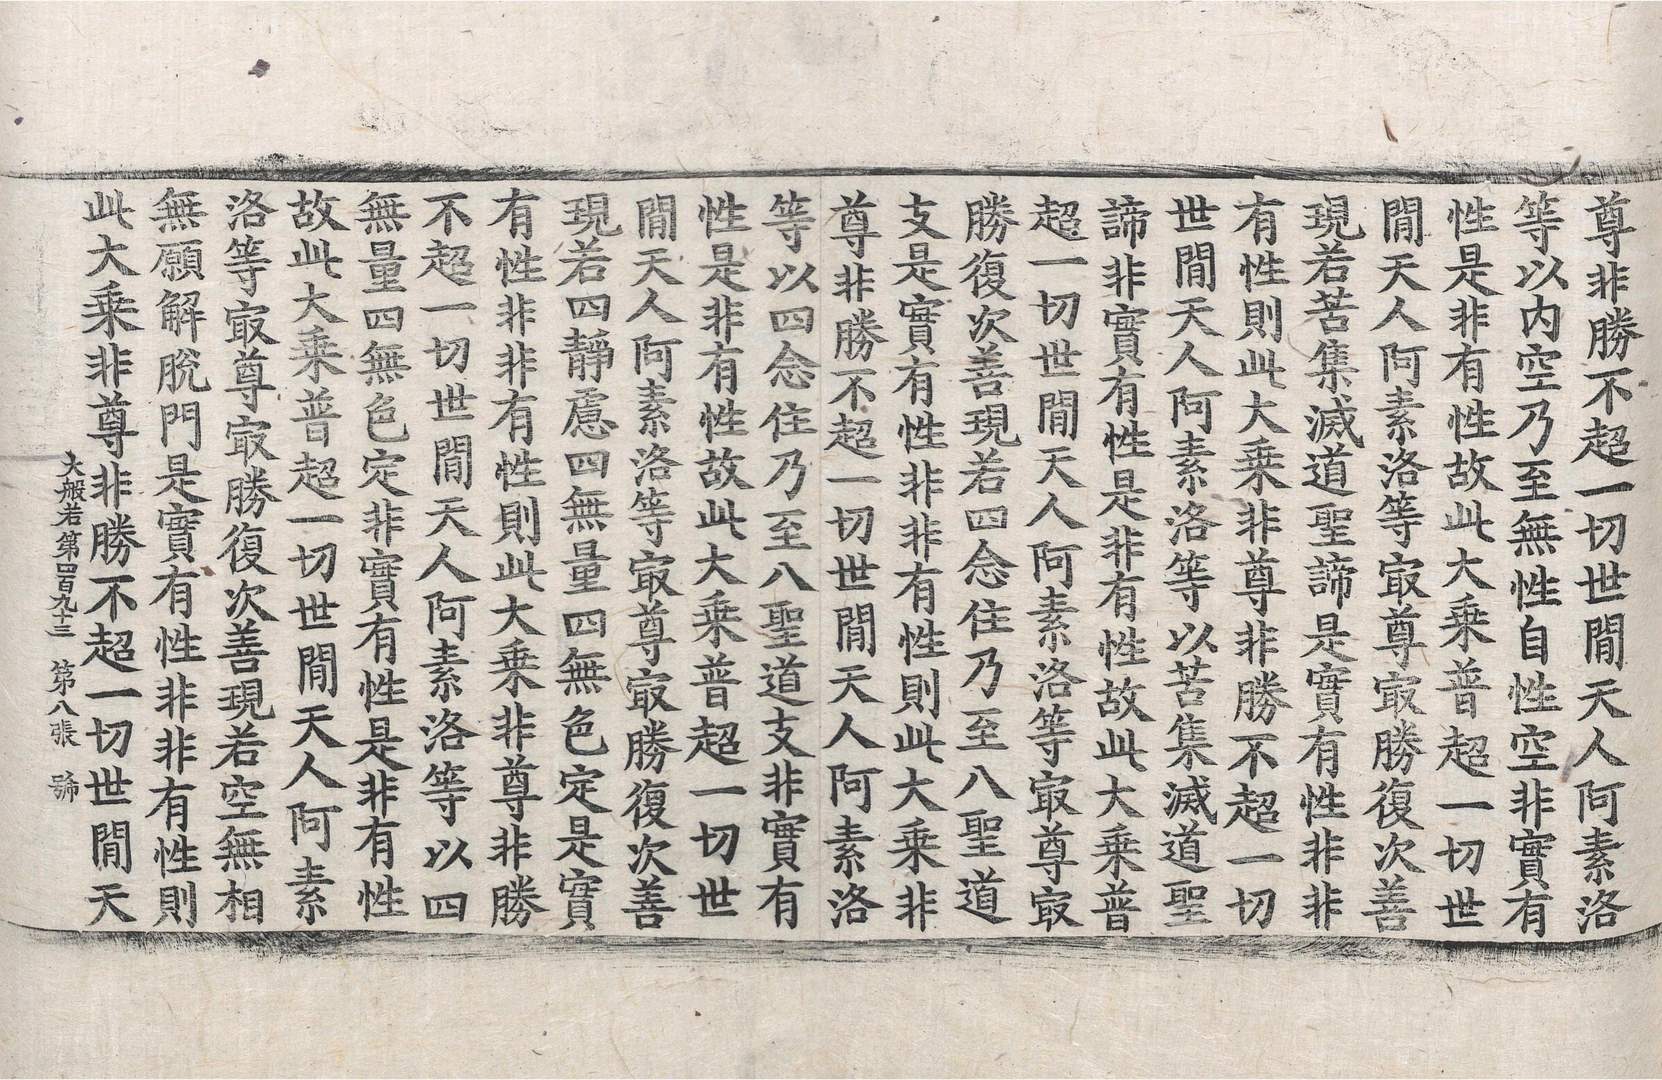 尊非勝不超一切世間天人阿素洛
等以内空乃至無性自性空非實有
性是非有性故此大乗普超一切世
間天人阿素洛等㝡尊㝡勝復次善
現若苦集滅道聖諦是實有性非非
有性則此大乗非尊非勝不超一切
世間天人阿素洛等以苦集滅道聖
諦非實有性是非有性故此大乗普
超一切世間天人阿素洛等㝡尊㝡
勝復次善現若四念住乃至八聖道
支是實有性非非有性則此大乗非
尊非勝不超一切世間天人阿素洛
等以四念住乃至八聖道支非實有
性是非有性故此大乗普超一切世
間天人阿素洛等㝡尊㝡勝復次善
現若四靜慮四無量四無色定是實
有性非非有性則此大乗非尊非勝
不超一切世間天人阿素洛等以四
無量四無色定非實有性是非有性
故此大乗普超一切世間天人阿素
洛等㝡尊㝡勝復次善現若空無相
無願解脫門是實有性非非有性則
此大乗非尊非勝不超一切世間天
大般若第四百九十三 第八張 號